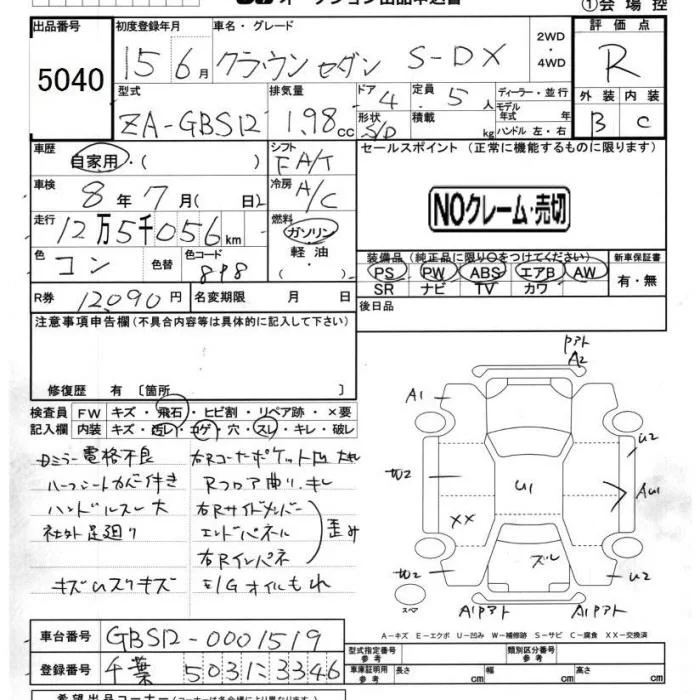 オークション出品申込書
①会場控
出品番号
5040
初度登録年月
15 6月
車名・グレード
クラウンセダン S-DX
2WD
・
4WD
評価点
R
型式
ZA-GBS12
排気量
1.98cc
ドア
4
形状
S/D
定員
5人
積載
kg
ディーラー・並行
モデル
年式 年
ハンドル 左・右
外装
B
内装
C
車歴
自家用・( )
シフト
FA/T
セールスポイント (正常に機能するものに限ります)
車検
8年7月( 日)
冷房
A/C
NOクレーム・売切
走行
12万5千056km
燃料
ガソリン
軽油
・( )
色
コン
色替
色コード
8P8
装備品 (純正品に限り○をつけてください)
PS PW ABS エアB AW
SR ナビ TV カワ
新車保証書
有・無
R券
12,090円
名変期限 月 日
後日品
注意事項申告欄(不具合内容等は具体的に記入して下さい)
修復歴 有〔箇所 〕
検査員
記入欄
FW キズ・飛石・ヒビ割・リペア跡・×要
内装 キズ・汚レ・コゲ・穴・スレ・キレ・破レ
Dミラー電格不良
ハーフシートカバー付き
ハンドルスレ大
社外足廻り
キズ凹スリキズ
右Rコーナーポケット凹
Rフロア曲り.キレ
右Rサイドメンバー
エンドパネル
右Rインパネ
歪み
E/Gオイルもれ
Pアト
A2
A1
U2
W2
U1
AU1
XX
W2
ズル
U2
スペア
A1Pアト
A1Pアト
A-キズ E-エクボ U-凹み W-補修跡 S-サビ C-腐食 XX-交換済
車台番号
GBS12-0001519
登録番号
千葉 503 に 3346
型式指定番号
参考
類別区分番号
参考
車庫証明用
参考
長さ cm
幅 cm
高さ cm
希望出品コーナー